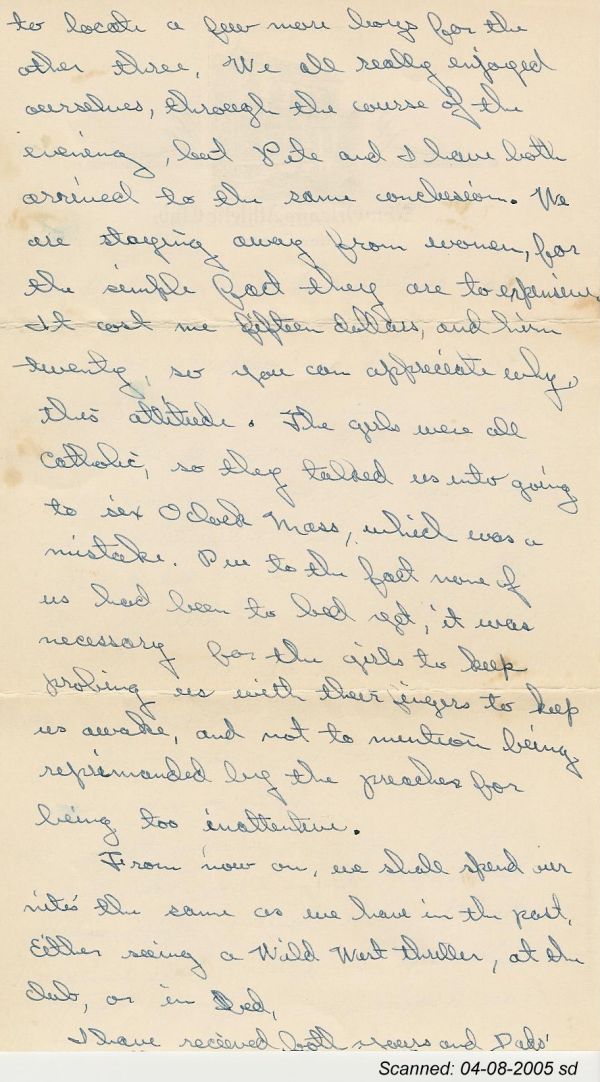 to locate a few more boys for the
other three. We all really enjoyed
ourselves, through the course of the
evening, but Pete and I have both
arrived to the same conclusion. We
are staying away from women, for
the simple fact they are to expensive.
It cost me fifteen dollars, and him
twenty, so you can appreciate why,
this attitude. The girls were all
Catholic, so they talked us into going
to six O'clock Mass, which was a
mistake. Due to the fact none of
us had been to bed yet, it was
necessary for the girls to keep
probing us with their fingers to keep
us awake, and not to mention being
reprimanded by the preacher for
being too inattentive.
From now on, we shall spend our
nites the same as we have in the past.
Either seeing a Wild West thriller, at the
club, or in bed.
I have received both yours and Dads'
Scanned: 04-08-2005 sd